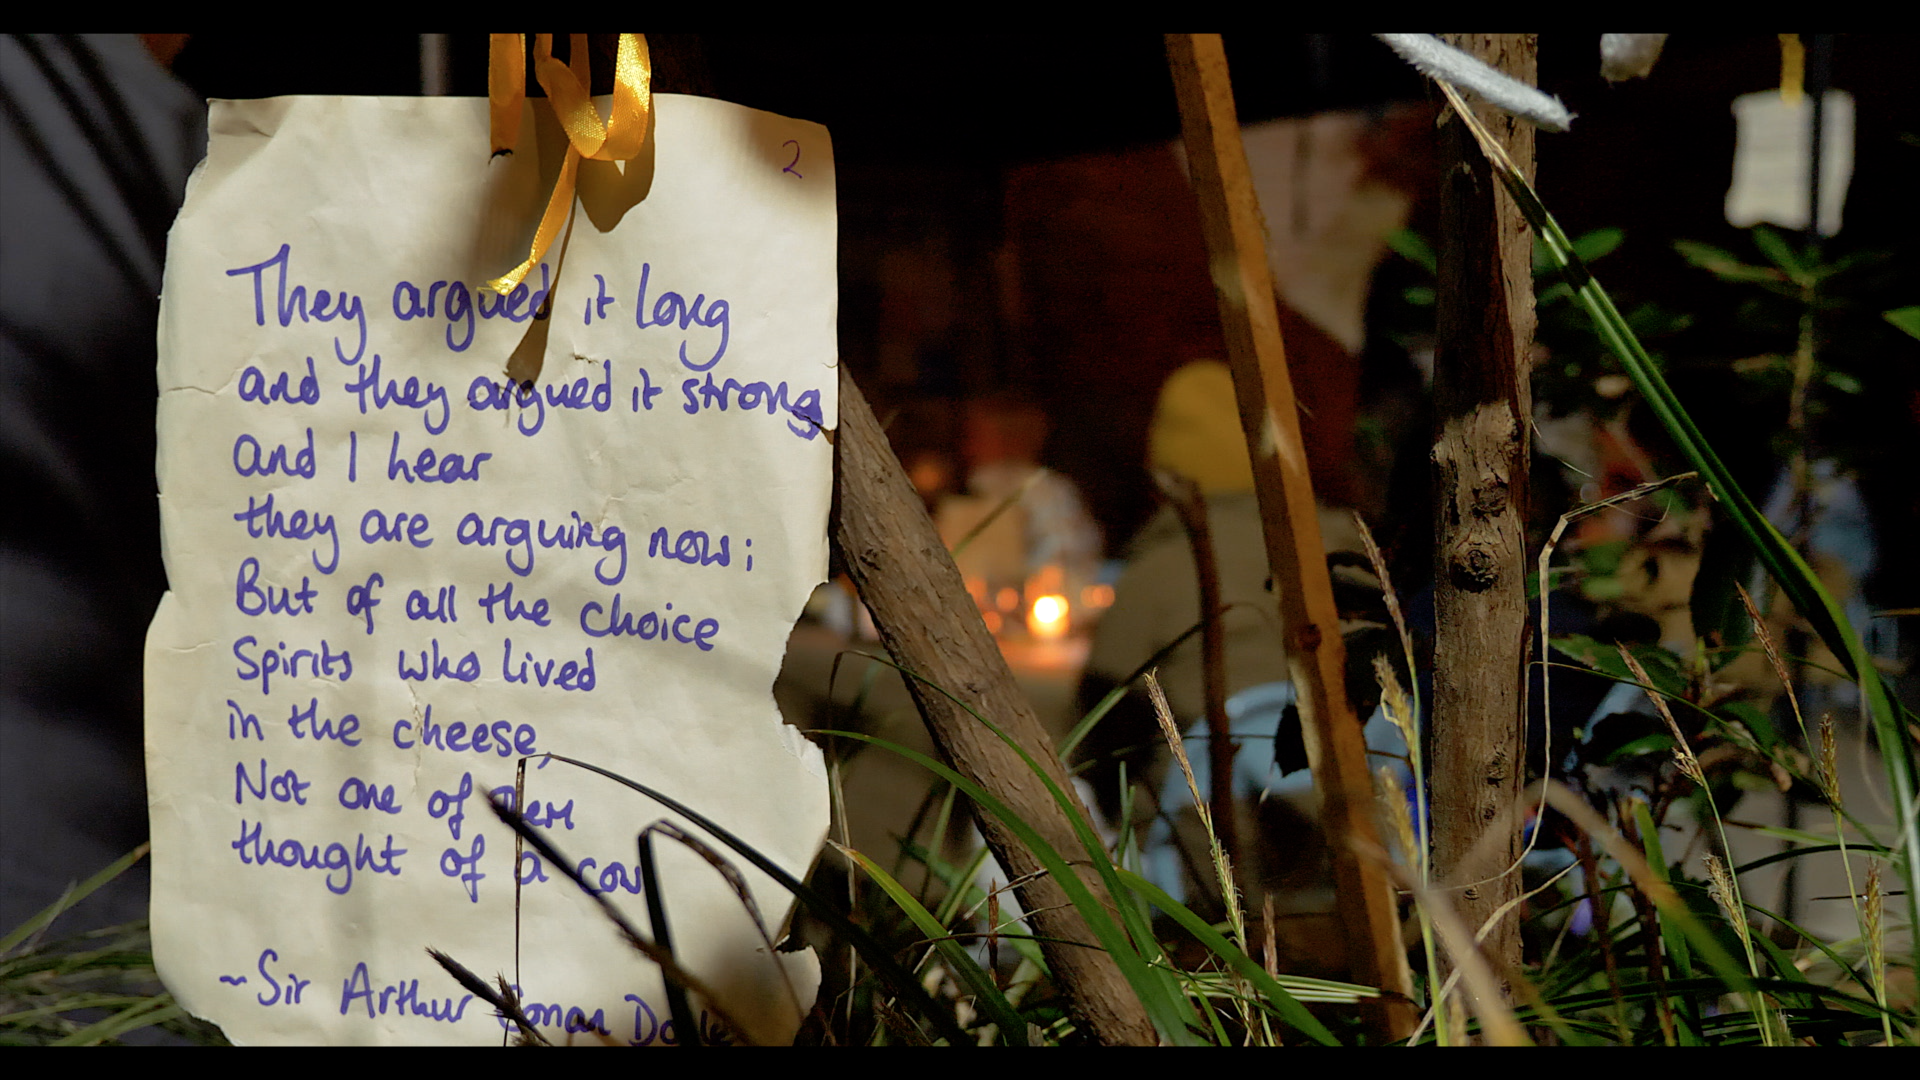 2
They argued it long
and they argued it strong
and I hear
they are arguing now;
But of all the choice
Spirits who lived
in the cheese,
Not one of them
thought of a cow
~Sir Arthur Conan Doyle